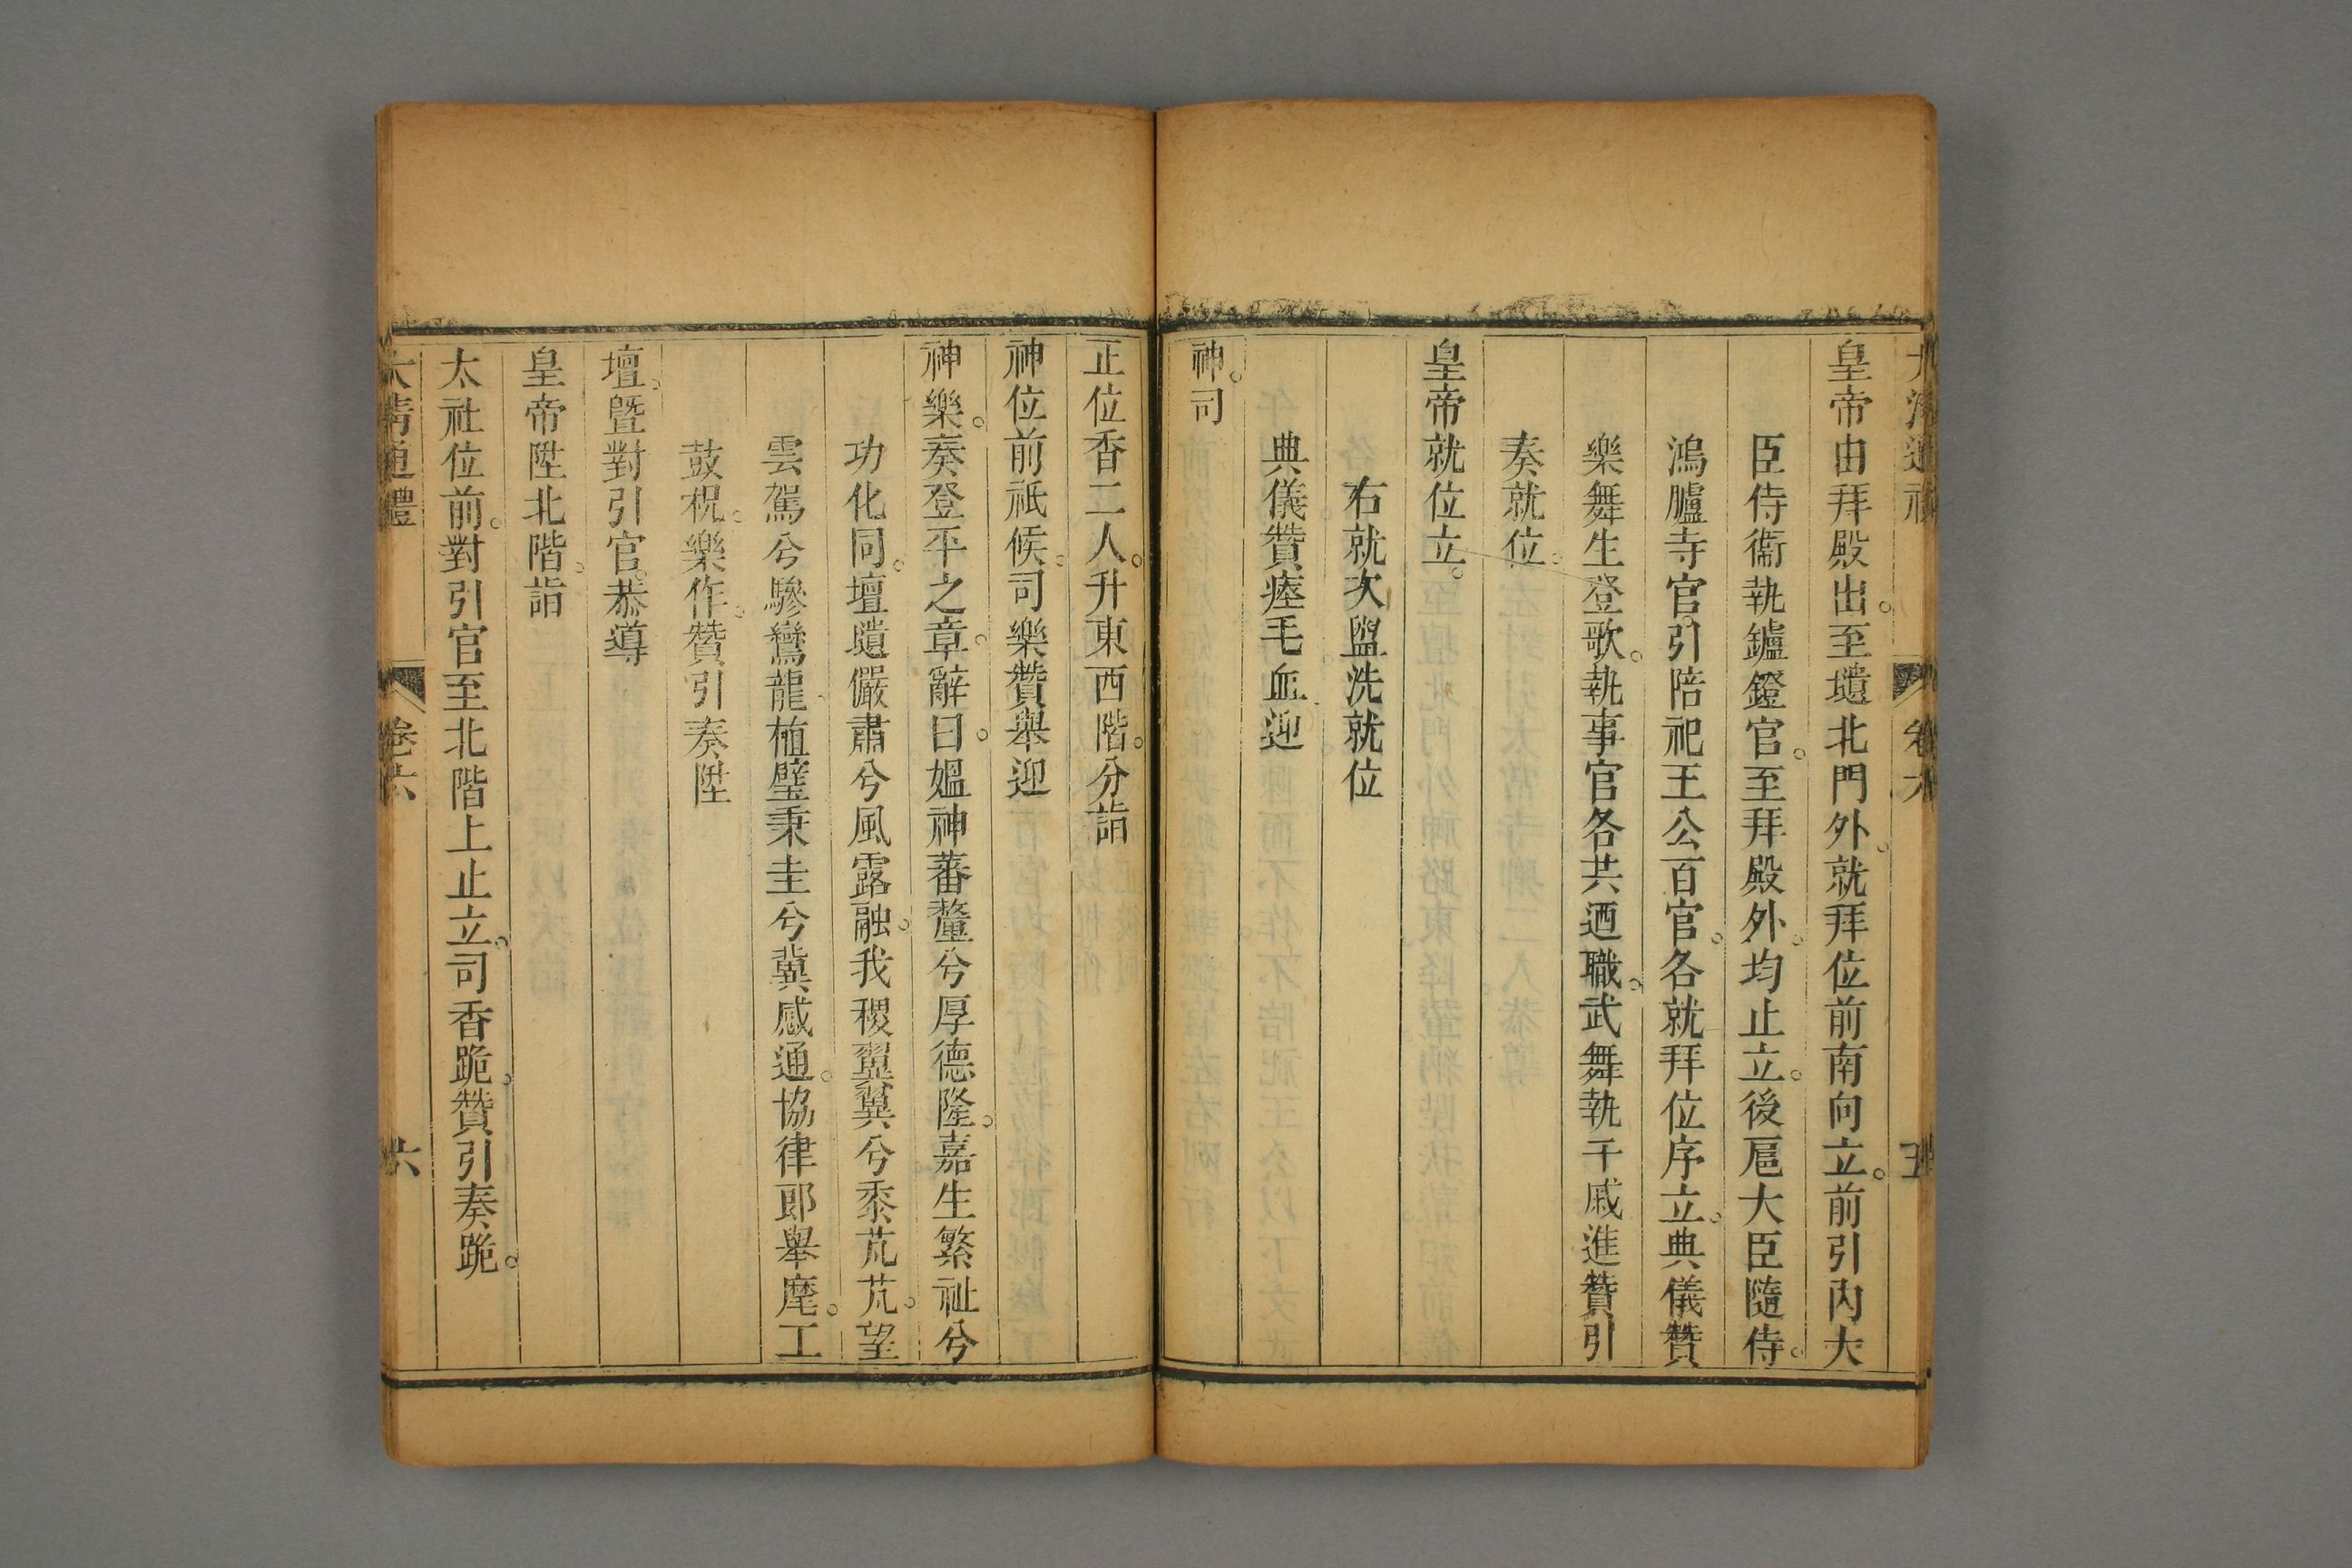 皇帝由拜殿出。至壝北門外。就拜位前南向立。前引內大
臣侍衞執鑪鐙官。至拜殿外。均止立。後扈大臣隨侍。
鴻臚寺官。引陪祀王公百官。各就拜位序立。典儀贊
樂舞生登歌。執事官各共迺職。武舞執干戚進贊引
奏就位。
皇帝就位立。
右就次盥洗就位
典儀贊瘞毛血迎
神。司
正位香二人。升東西階。分詣
神位前祇候。司樂贊舉迎
神樂。奏登平之章。辭曰。媼神蕃釐兮厚德隆。嘉生繁祉兮
功化同。壇壝儼肅兮風露融。我稷翼翼兮黍芃芃。望
雲駕兮驂鸞龍。植璧秉圭兮冀感通。協律郎舉麾。工
鼓柷。樂作。贊引奏陞
壇。暨對引官。恭導
皇帝陞北階。詣
太社位前。對引官至北階上止立。司香跪。贊引奏跪。
大清通禮 卷六 六